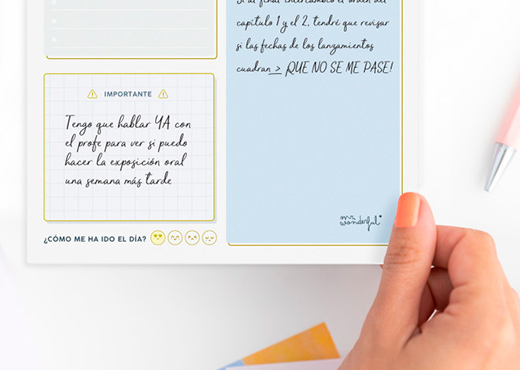 IMPORTANTE
Tengo que hablar YA con
el profe para ver si puedo
hacer la exposición oral
una semana más tarde
¿CÓMO ME HA IDO EL DÍA?
Si al final intercambio el orden del
capítulo 1 y el 2, tendré que revisar
si las fechas de los lanzamientos
cuadran > ¡QUE NO SE ME PASE!
mr. wonderful*